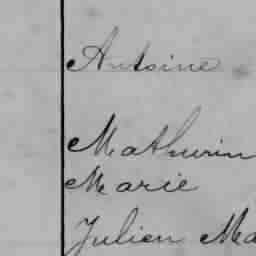 Antoine
Mathurin
Marie
Julien Ma